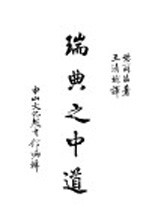 著
王清彬譯
瑞典之中道
中山文化教育館編輯